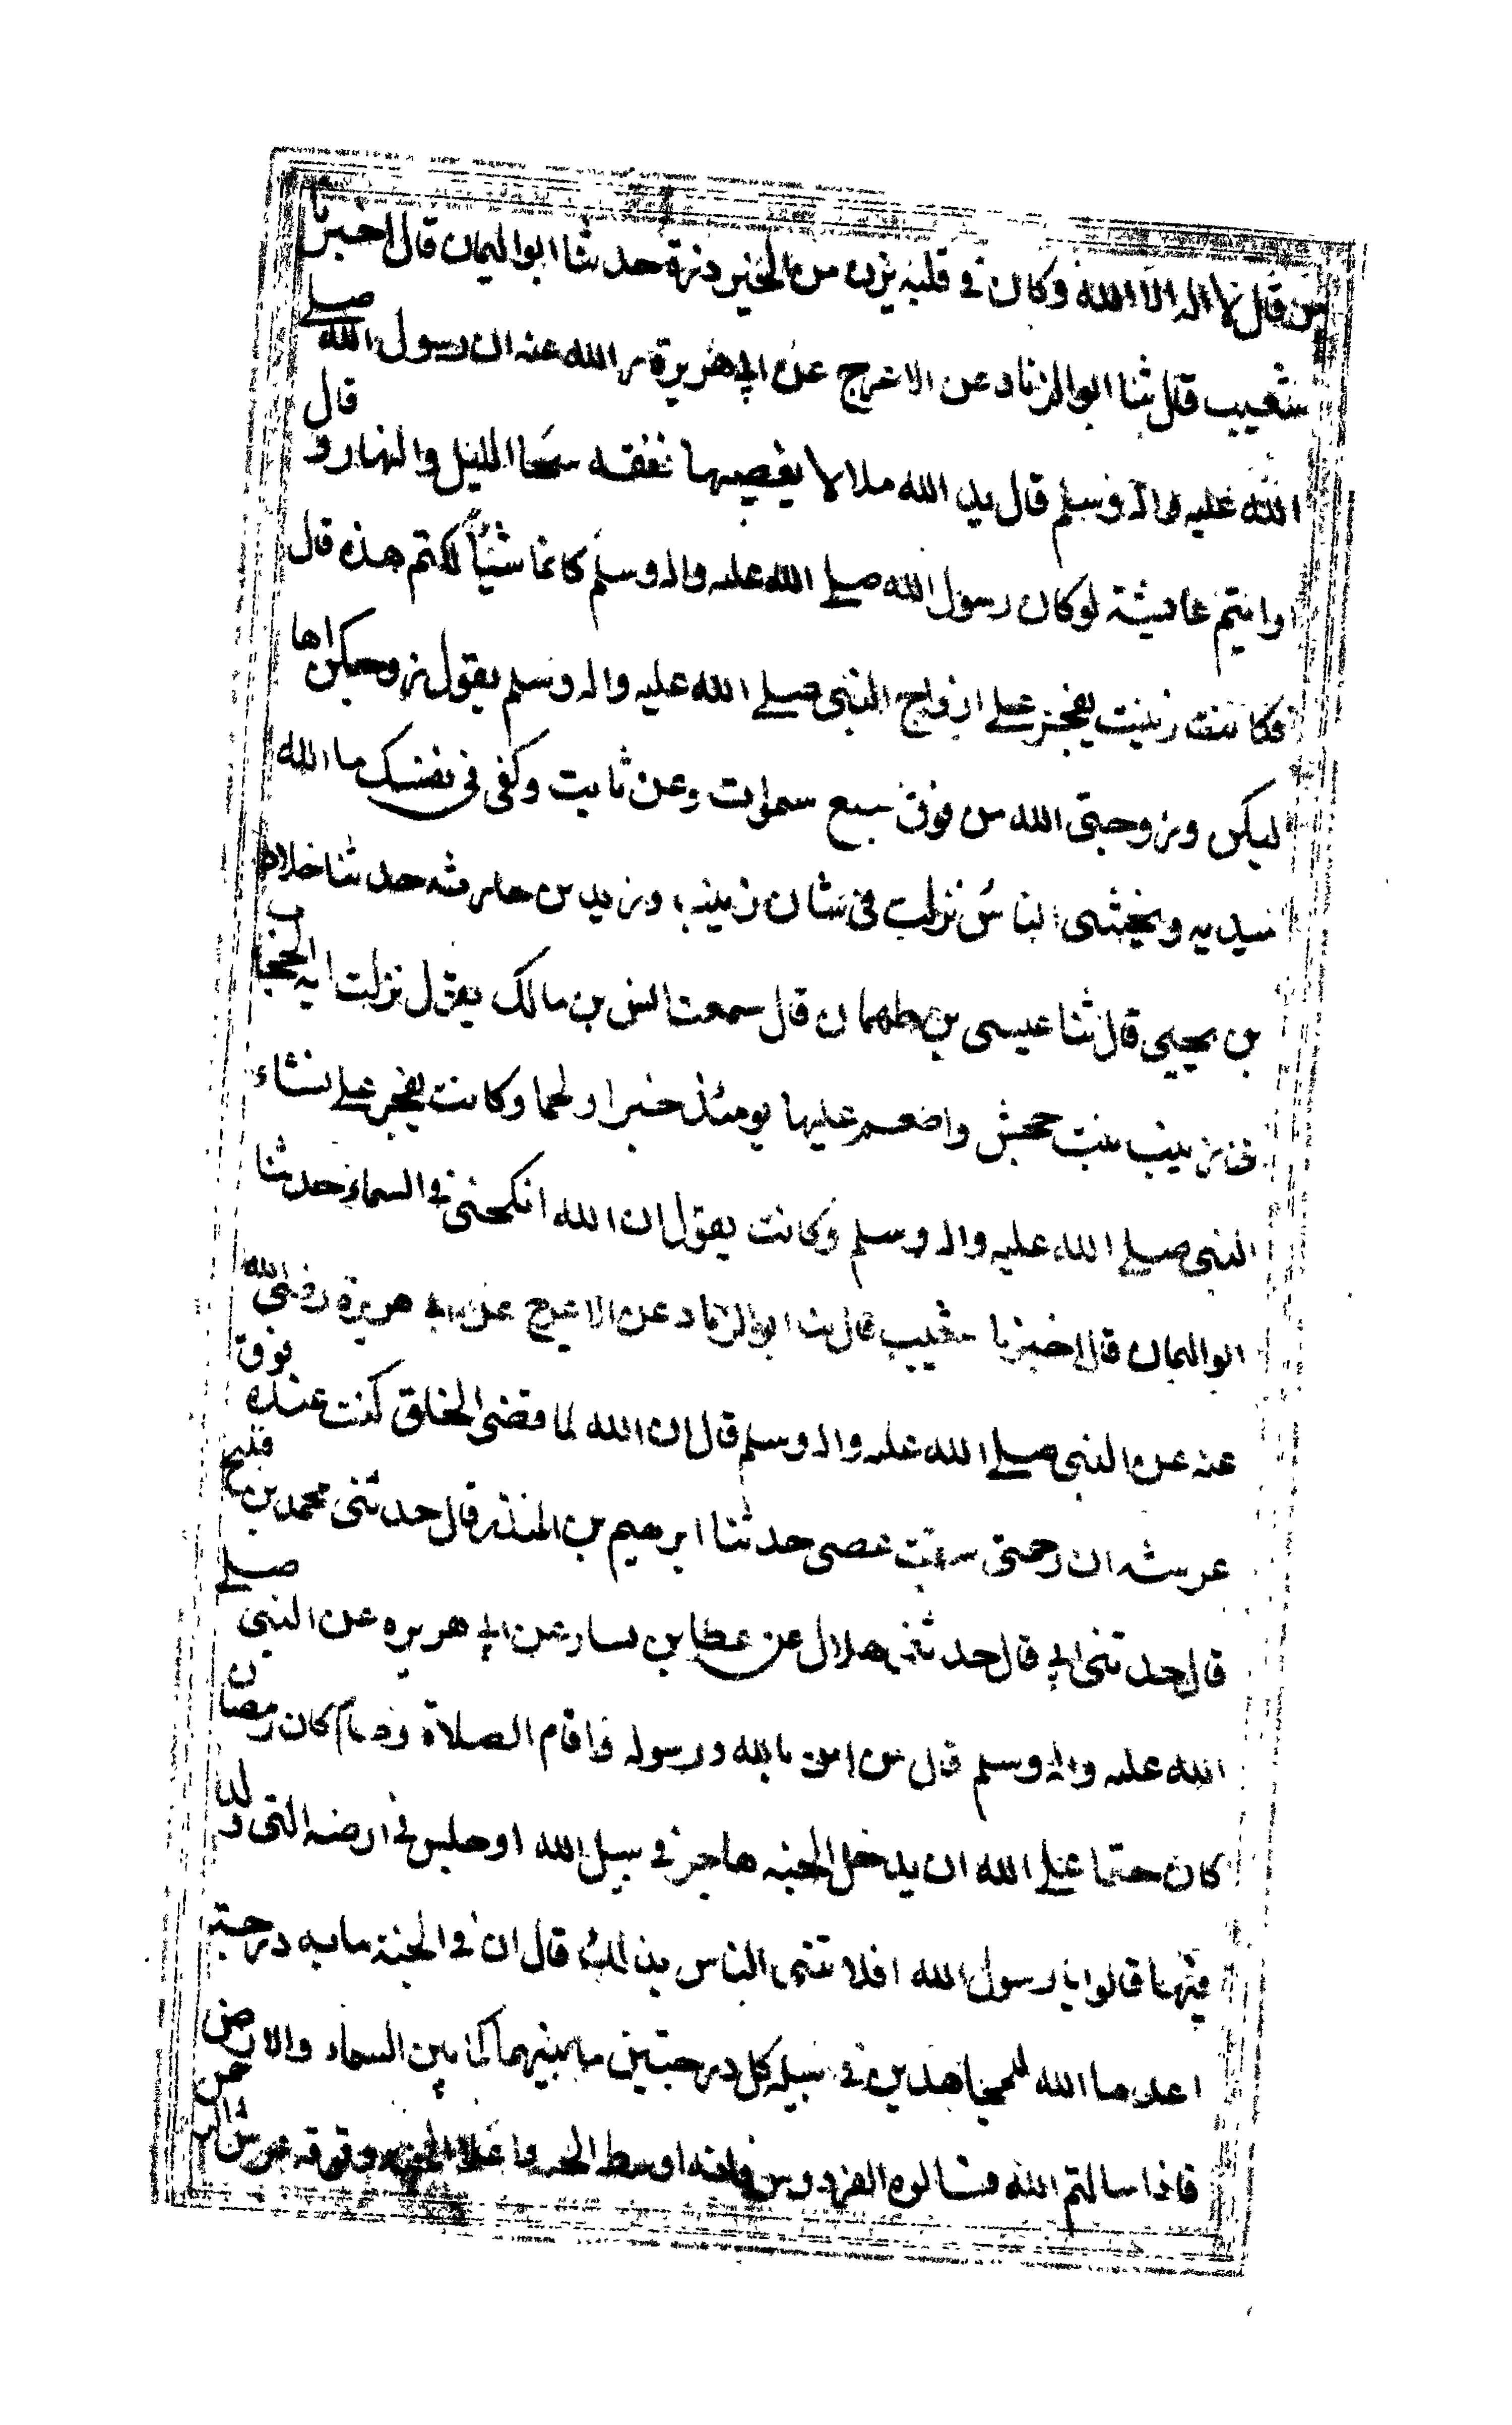 من قال لا اله الا الله وكان في قلبه يزن من الخير ذرة حدثنا ابو اليمان قال اخبرنا
شعيب قال ثنا ابو الزناد عن الاعرج عن ابي هريرة ر الله عنه ان رسول الله صلى
الله عليه واله وسلم قال يد الله ملا لا يغيصها نفقه سحا الليل والنهار و قال
ارايتم عايشة لو كان رسول الله صلى الله عليه واله وسلم كاتما شيئا لكتم هذه قال
فكانت زينت يفخر على ازواج النبي صلى الله عليه واله وسلم يقول زوجكن اها
ليكن وزوجتى الله من فوق سبع سموات وعن ثابت وكفى فى نفسك ما الله
مبديه ويخشى الناس نزلت فى شان زينب وزيد بن حارثه حدثنا خلاد
بن يحيى قال ثنا عيسى بن طهمان قال سمعت انس بن مالك يقول نزلت ايه الحجاب
فى زينب بنت جحش واضعم عليها يومئذ خبرا ولحما وكانت يفخر على نساء
النبي صلى الله عليه واله وسلم وكانت يقول ان الله انكحنى فى السماء حدثنا
ابو اليمان قال اخبرنا شعيب قال ثنا ابو الزناد عن الاعرج عن ابي هريرة رضي الله
عنه عن النبي صلى الله عليه واله وسلم قال ان الله لما قضى الخلق كنت عنده فوق
عرشه ان رحمتى سبقت غضبى حدثنا ابرهيم بن المنذر قال حدثنى محمد بن فليح
قال حدثنى ابي قال حدثنى هلال عن عطا بن يسار عن ابي هريره عن النبي صلى
الله عليه واله وسلم قال من امن بالله ورسوله واقام الصلاة وصام كان رمضان
كان حتما على الله ان يدخل الجنه هاجر في سبيل الله او جلس في ارضه التى ولد
فيها قالوا يا رسول الله افلا ننبى الناس بذلك قال ان في الجنة مايه درجة
اعدها الله للمجاهدين في سبيله كل درجتين ما بينهما كما بين السماء والارض
فاذا سالتم الله فسالوه الفردوس فانه اوسط الجنه واعلا الجنه وفوقه عرش الرحمن